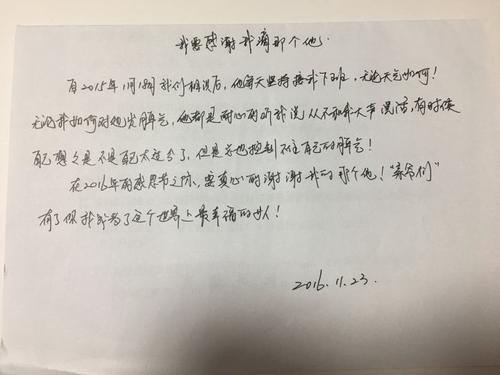 我要感谢我滴那个他.
自2015年1月18号我们相识后,他每天坚持接我下班,无论天气如何!
无论我如何对他发脾气,他都是耐心的听我说从不和我大声说话,有时候
自己想想是不是自己太过分了,但是总也控制不住自己的脾气!
在2016年的感恩节之际,要真心的谢谢我的那个他!"亲爱的"
有了你我成为了这个世界上最幸福的女人!
2016.11.23.